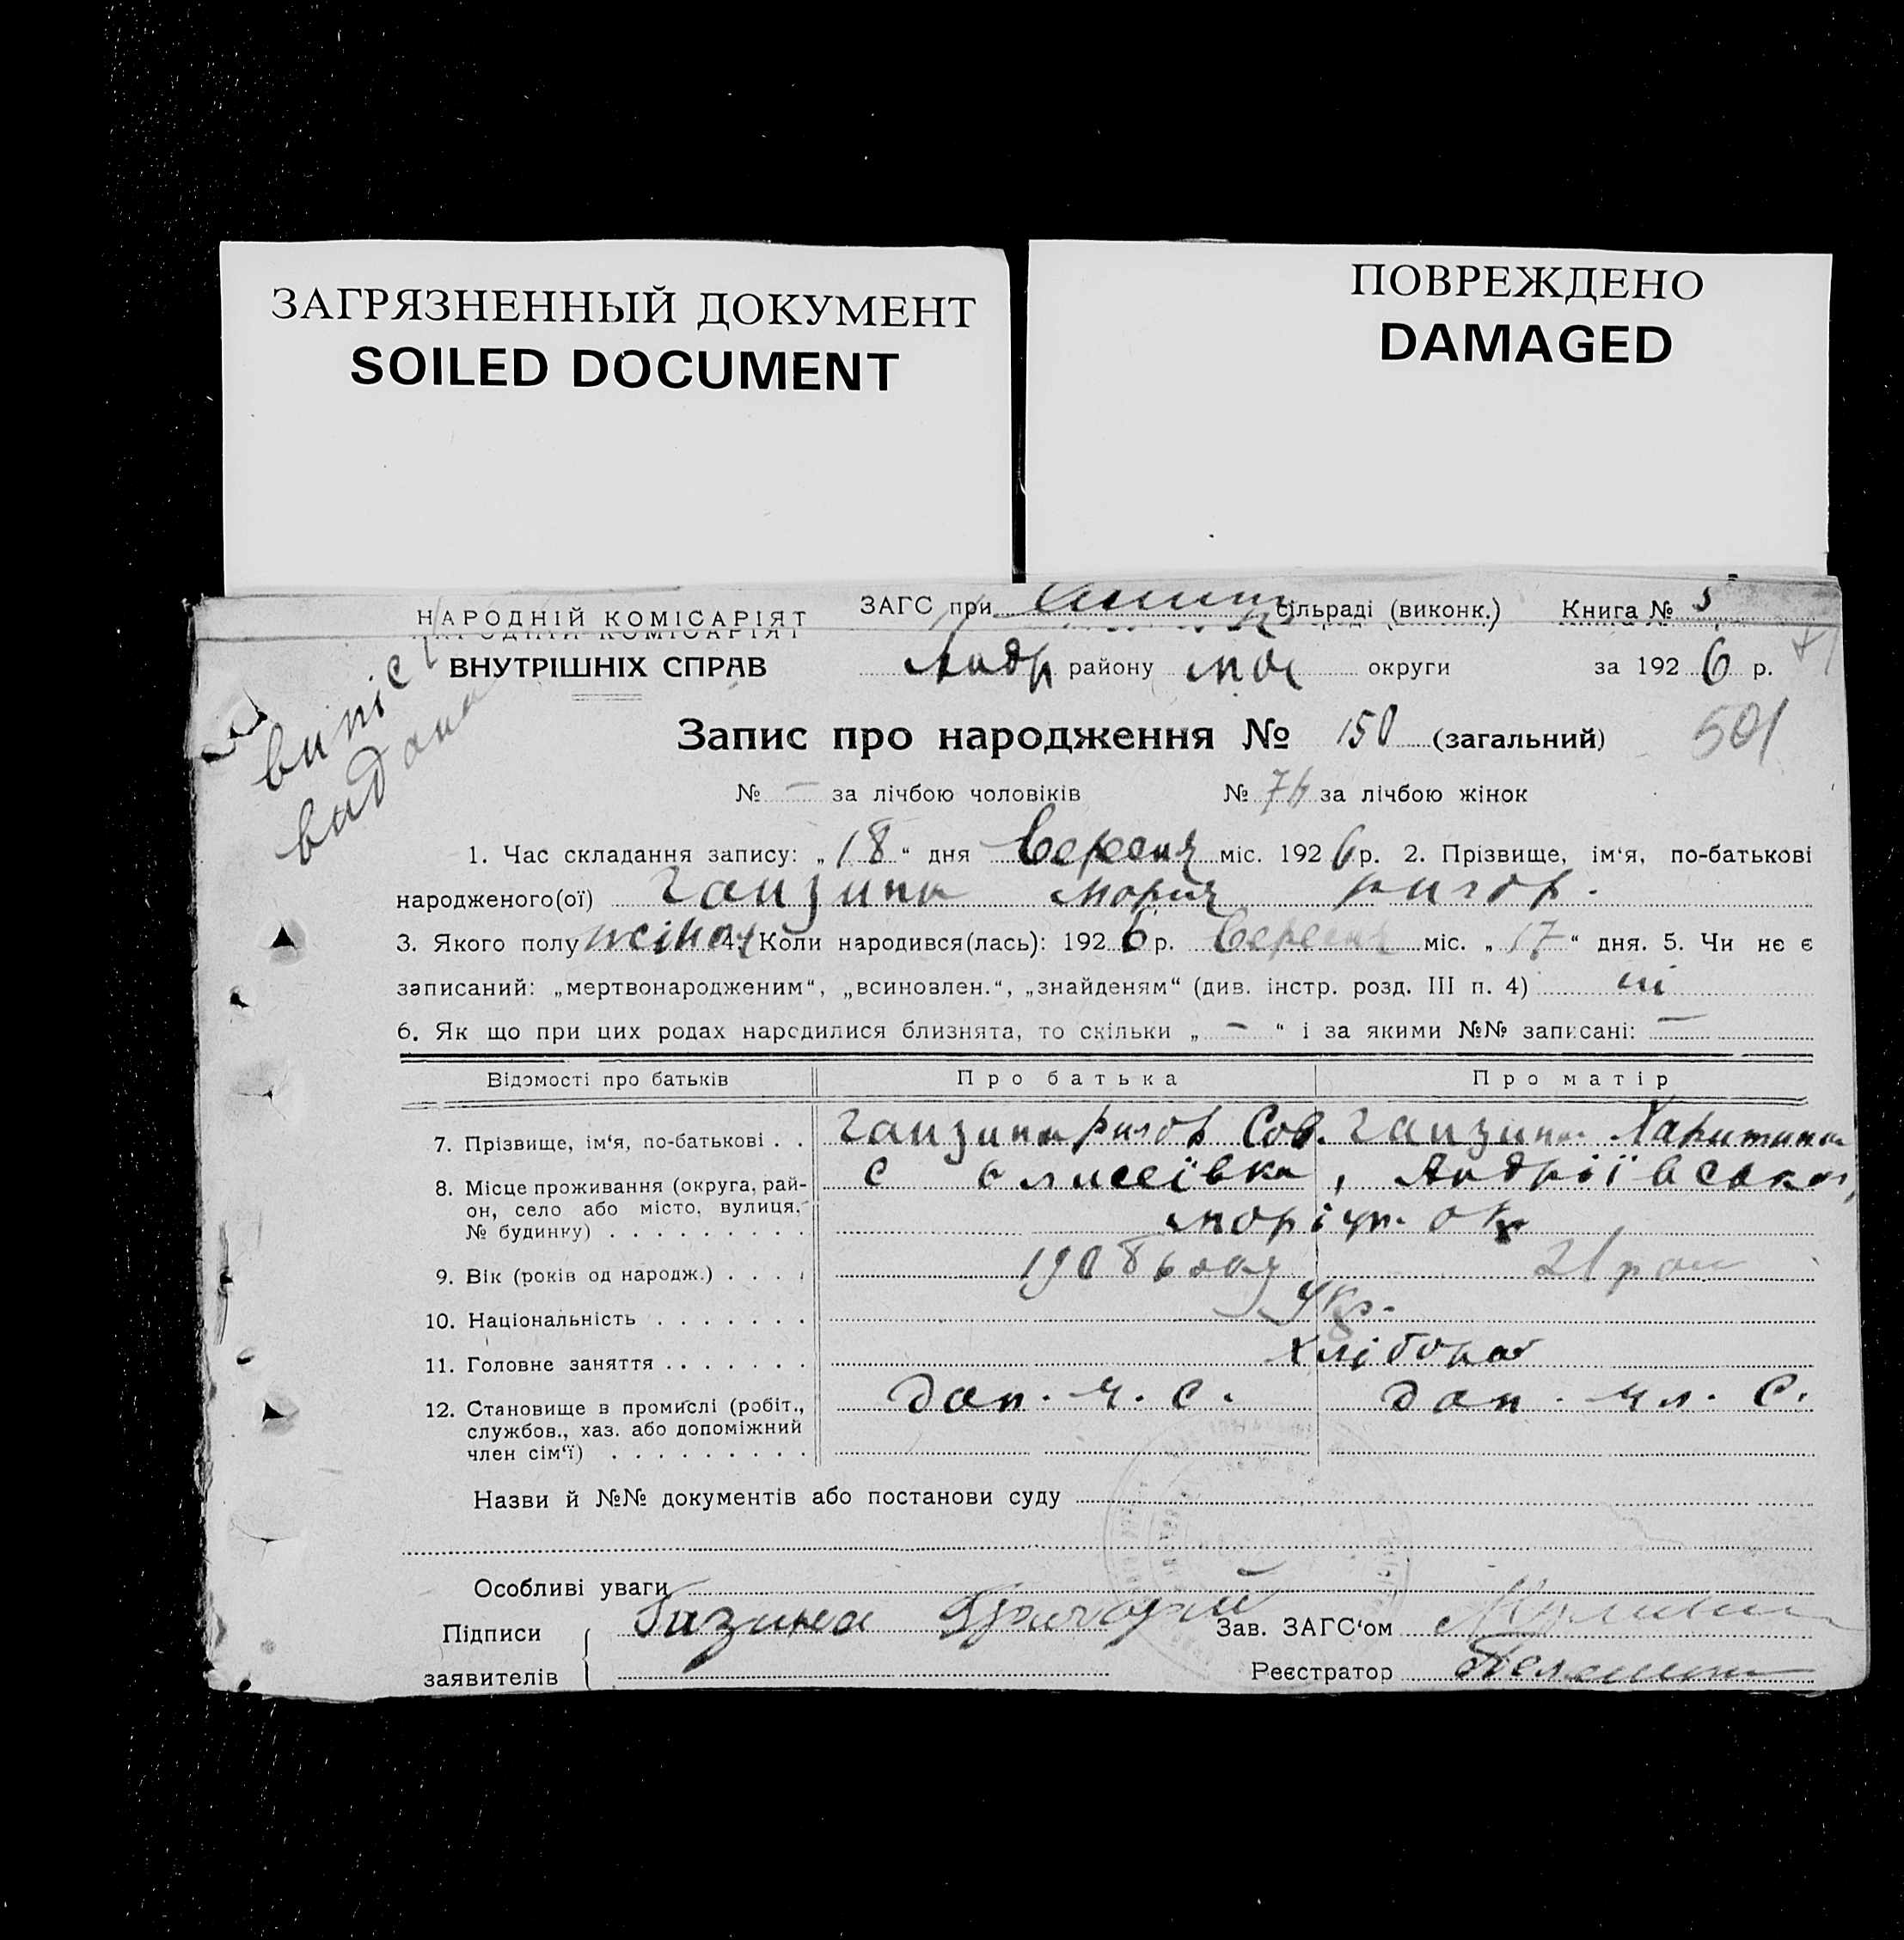 ЗАГРЯЗНЕННЫЙ ДОКУМЕНТ
SOILED DOCUMENT
ПОВРЕЖДЕНО
DAMAGED
НАРОДНІЙ КОМІСАРІЯТ
ВНУТРІШНІХ СПРАВ
ЗАГС при сільраді (виконк.) Книга № 5
Андр району мар округи за 1926 р.
випіс
видана
Запис про народження № 150 (загальний)
501
№ — за лічбою чоловіків № 76 за лічбою жінок
1. Час складання запису: „18“ дня Вересня міс. 1926 р. 2. Прізвище, ім‘я, по-батькові
народженого(ої) Ганзина Мария Григор.
3. Якого полу жіноч 4. Коли народився(лась): 1926 р. Вересня міс. „17“ дня. 5. Чи нє є
записаний: „мертвонародженим“, „всиновлен.“, „знайденям“ (див. інстр. розд. III п. 4) ні
6. Як що при цих родах народилися близнята, то скільки „—“ і за якими №№ записані: —
Відомості про батьків Про батька Про матір
7. Прізвище, ім‘я, по-батькові . . Ганзина Григор Сав. Ганзина Харитина
8. Місце проживання (округа, рай-
он, село або місто, вулиця,
№ будинку) . . . . . . . . . с Єлисеївка, Андріївськог,
маріуп. окр
9. Вік (років од народж.) . . . . 1908 году 21 рок
10. Національність . . . . . . . Укр.
11. Головне заняття . . . . . . . Хлібороб
12. Становище в промислі (робіт.,
службов., хаз. або допоміжний
член сім‘ї) . . . . . . . . . доп. ч. с. доп. чл. с.
Назви й №№ документів або постанови суду
Особливі уваги
Підписи
заявителів
Газина Григорий
Зав. ЗАГС‘ом
Реєстратор